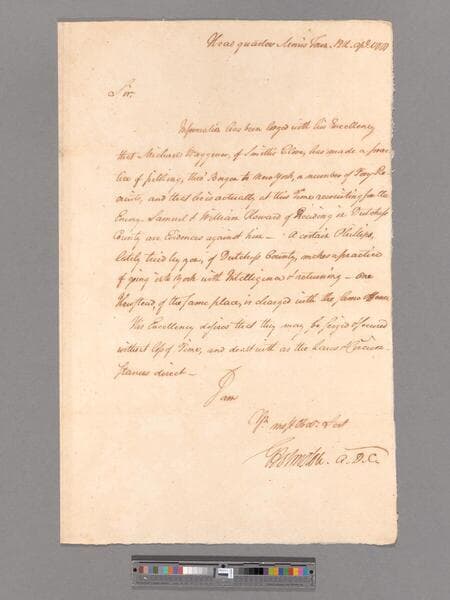 Head quarters Morris Town. 12th. April 1780
Sir.
Information has been lodged with his Excellency
that Michael Waggoner, of Smith's Clove, has made a prac
tice of piloting, thro' Bergen to New York, a number of Tory Re
cruits, and that he is actually at this Time recruiting for the
Enemy. Samuel & William Howard of Residing in Dutchess
County are Evidences against him – A certain Phillips,
lately tried by you, of Dutchess County, makes a practice
of going into York with Intelligence & returning – one
of the same place, is charged with the same offence
His Excellency desires that they may be seized & secured
without loss of Time, and dealt with as the Laws & Circum
stances direct –
I am
Yr. most Obedt. Servt
A.D.C.